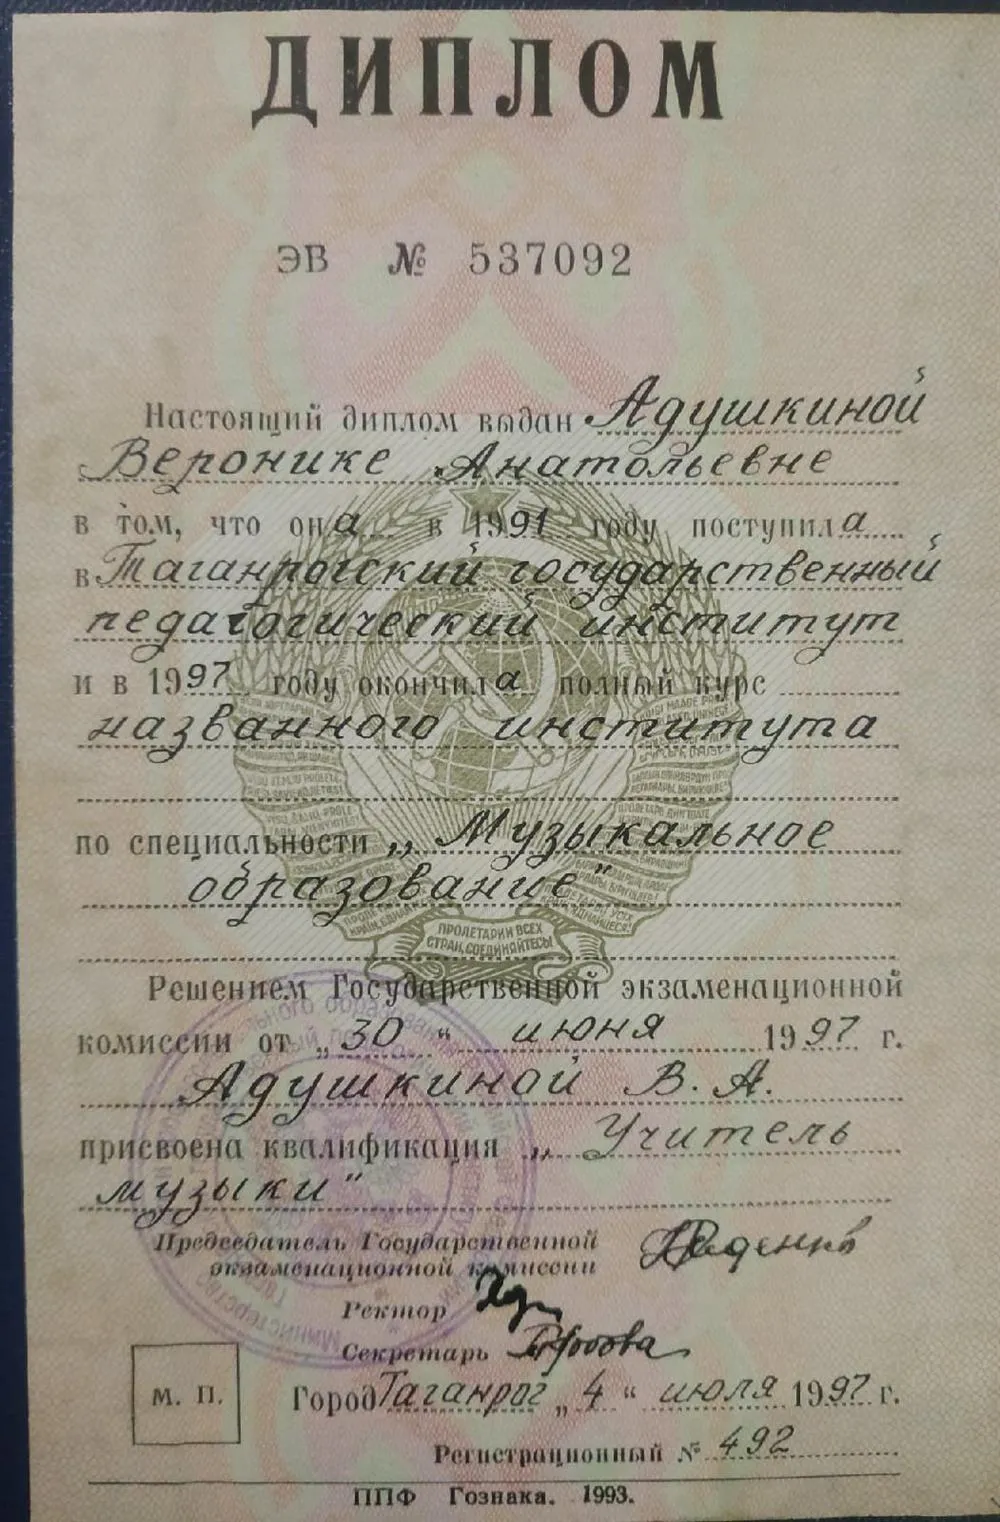 ДИПЛОМ
ЭВ № 537092
Настоящий диплом выдан Адушкиной
Веронике Анатольевне
в том, что она в 1991 году поступила
в Таганрогский государственный
педагогический институт
и в 1997 году окончила полный курс
названного института
по специальности „Музыкальное
образование"
ПРОЛЕТАРИИ ВСЕХ
СТРАН, СОЕДИНЯЙТЕСЬ!
Решением Государственной экзаменационной
комиссии от „30" июня 1997 г.
Адушкиной В. А.
присвоена квалификация „Учитель
музыки"
Председатель Государственной
экзаменационной комиссии
Ректор
Секретарь
М. П.
Город Таганрог „4" июля 1997 г.
Регистрационный № 492
ППФ Гознака. 1993.